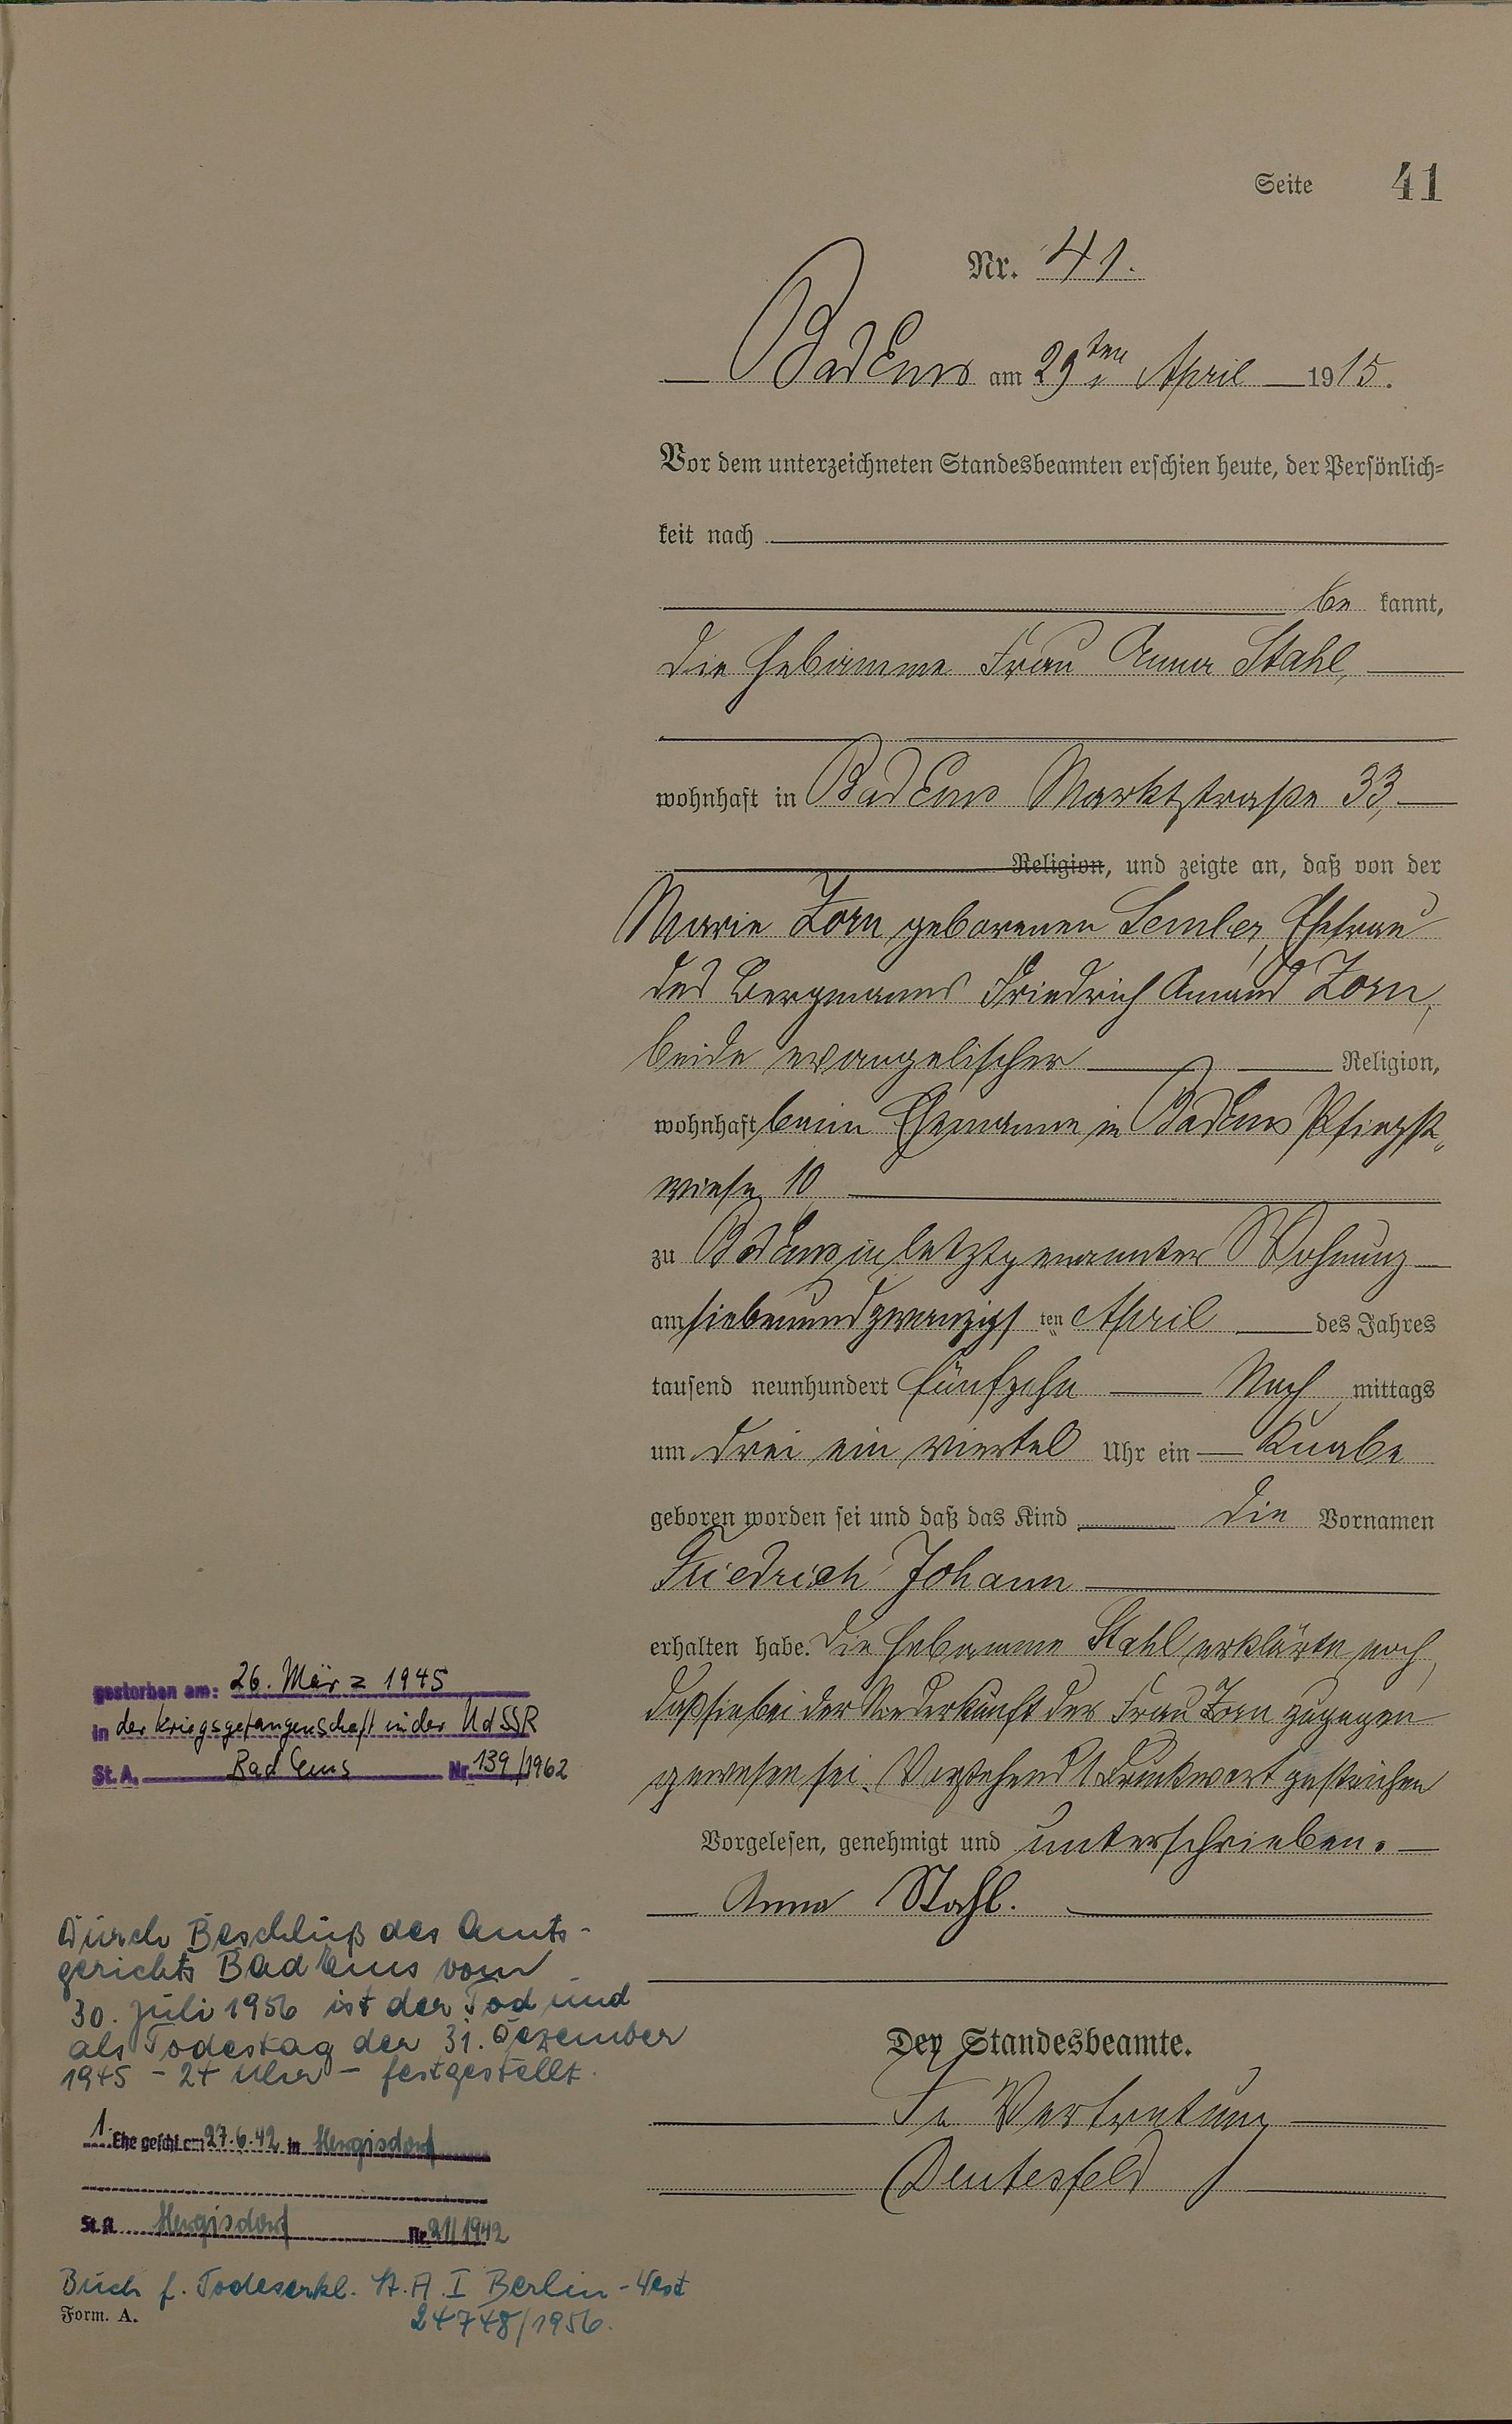 Seite 41
Nr. 41.
Bad Ems am 29ten April 1915.
Vor dem unterzeichneten Standesbeamten erschien heute, der Persönlich=
keit nach
be kannt,
die Hebamme Frau Anna Stahl,
wohnhaft in Bad Ems Marktstraße 33,
Religion, und zeigte an, daß von der
Marie Zorn geborenen Semler, Ehefrau
des Bergmanns Friedrich Amand Zorn,
beide evangelischer Religion,
wohnhaft beim Ehemanne in Bad Ems Pfingst„
wiese 10
zu Bad Ems in letztgenannter Wohnung
am siebenundzwanzigs ten April des Jahres
tausend neunhundert fünfzehn Nach mittags
um drei ein viertel Uhr ein Knabe
geboren worden sei und daß das Kind die Vornamen
Friedrich Johann
erhalten habe. Die Hebamme Stahl erklärte noch,
daß sie bei der Niederkunft der Frau Zorn zugegen
gewesen sei. Vorstehend 1 Druckwort gestrichen
Vorgelesen, genehmigt und unterschrieben.
Anna Stahl.
Der Standesbeamte.
In Vertretung
Deutesfeld
gestorben am: 26. März 1945
in der Kriegsgefangenschaft in der UdSSR
St. A. Bad Ems Nr. 139/1962
Durch Beschluß des Amts-
gerichts Bad Ems vom
30. Juli 1956 ist der Tod und
als Todestag der 31. Dezember
1945 - 24 Uhr - festgestellt.
1. Ehe geschl. am 27.6.42 in Hergisdorf
St. A. Hergisdorf Nr. 21/1942
Buch f. Todeserkl. St. A. I Berlin-West
24748/1956.
Form. A.